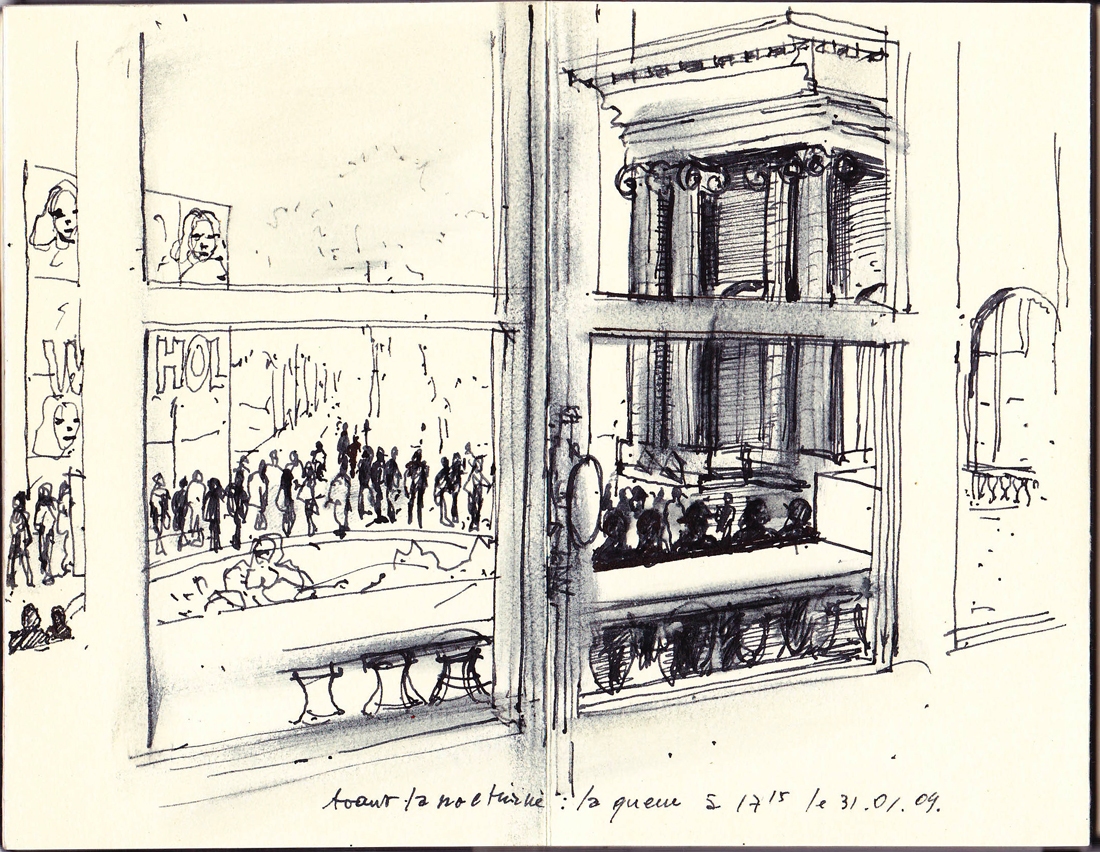 HOL
Avant la nocturne : la queue à 17 15 le 31.01.09.